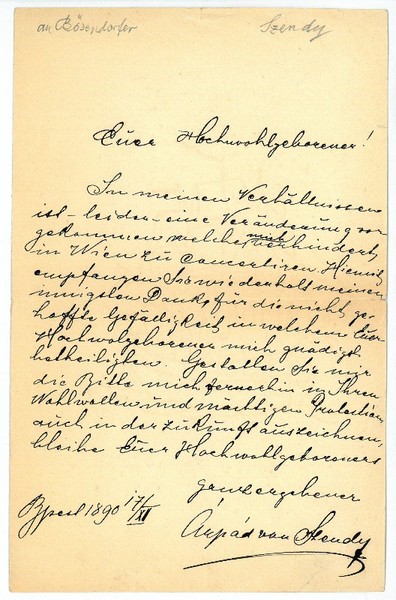 an Bösendorfer
Szendy
Euer Hochwohlgeborener!
In meinen Verhältnissen
ist – leider – eine Veränderung vor
gekommen welche mich verhindert,
in Wien zu concertiren. Hiemit
empfangen Sie wiederholt meinen
innigsten Dank für die nicht ge-
hoffte Gefälligkeit in welchem Euer
Hochwolgeborener mich gnädigst
betheiligten. Gestatten Sie mir
die Bitte mich fernerhin in Ihren
Wohlwollen und mächtigen Protection
auch in der Zukunft auszeichnen,
bleibe Euer Hochwolgeboreners
ganz ergebener
Bpest 1890 17/XI
Árpád von Szendy